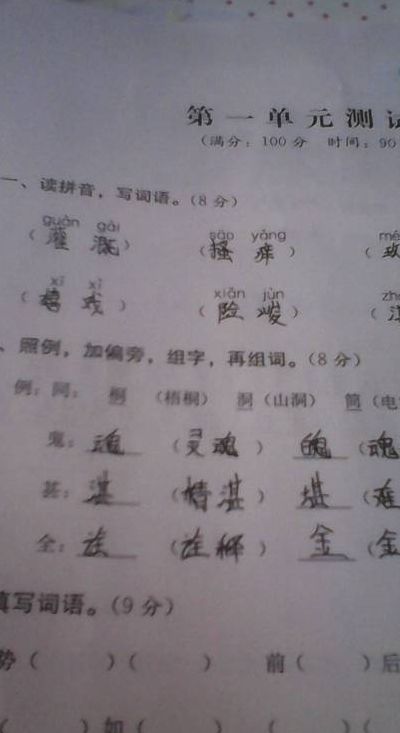 第一单元测试
（满分：100分 时间：90
一、读拼音，写词语。（8分）
guàn gài
（灌溉） sāo yǎng （搔痒）
xī xì
（嬉戏） xiǎn jùn （险峻）
、照例，加偏旁，组字，再组词。（8分）
例：同：桐（梧桐） 洞（山洞） 筒（电
鬼：魂（灵魂） 魄（魂
甚：湛（精湛） 堪（难
全： 金（金
填写词语。（9分）
势（ ）（ ） 前（ ）后
（ ）如（ ） （ ）（